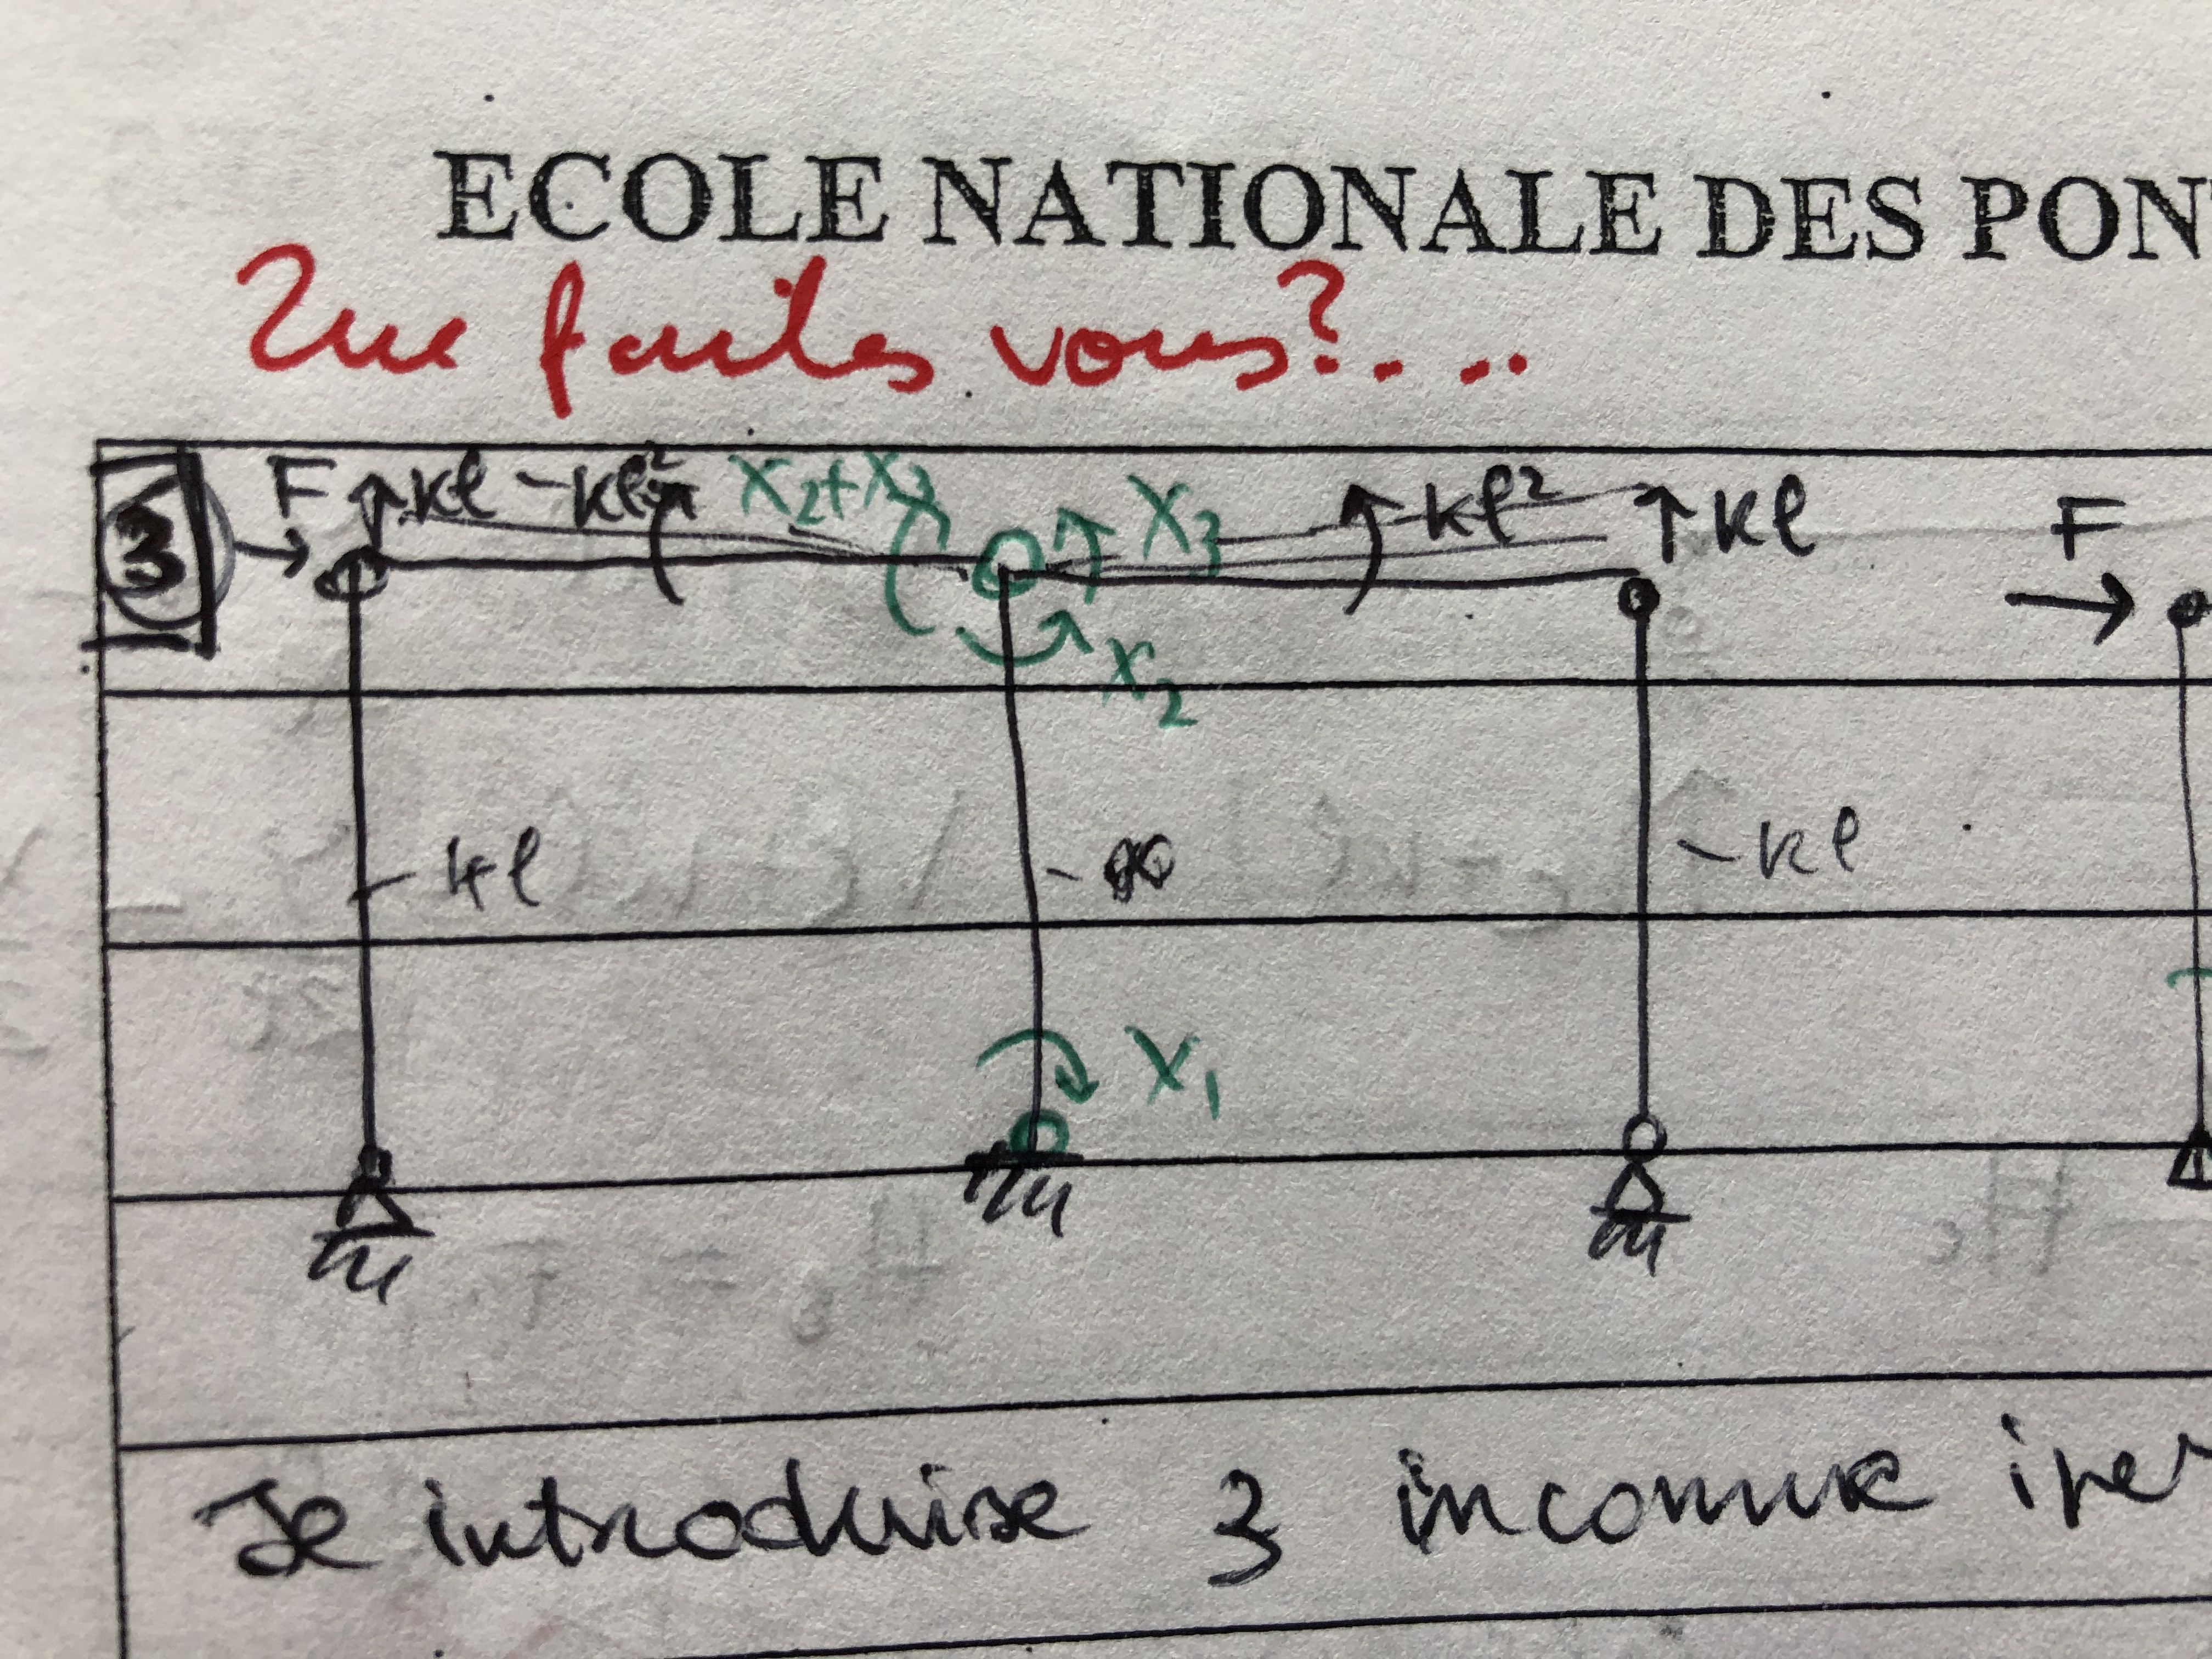 ECOLE NATIONALE DES PON
Que faites vous?....
3 F kl -kl² X₂+X₃ X₃ kl² kl F
X₂
kl kl
X₁
Je introduise 3 inconnue